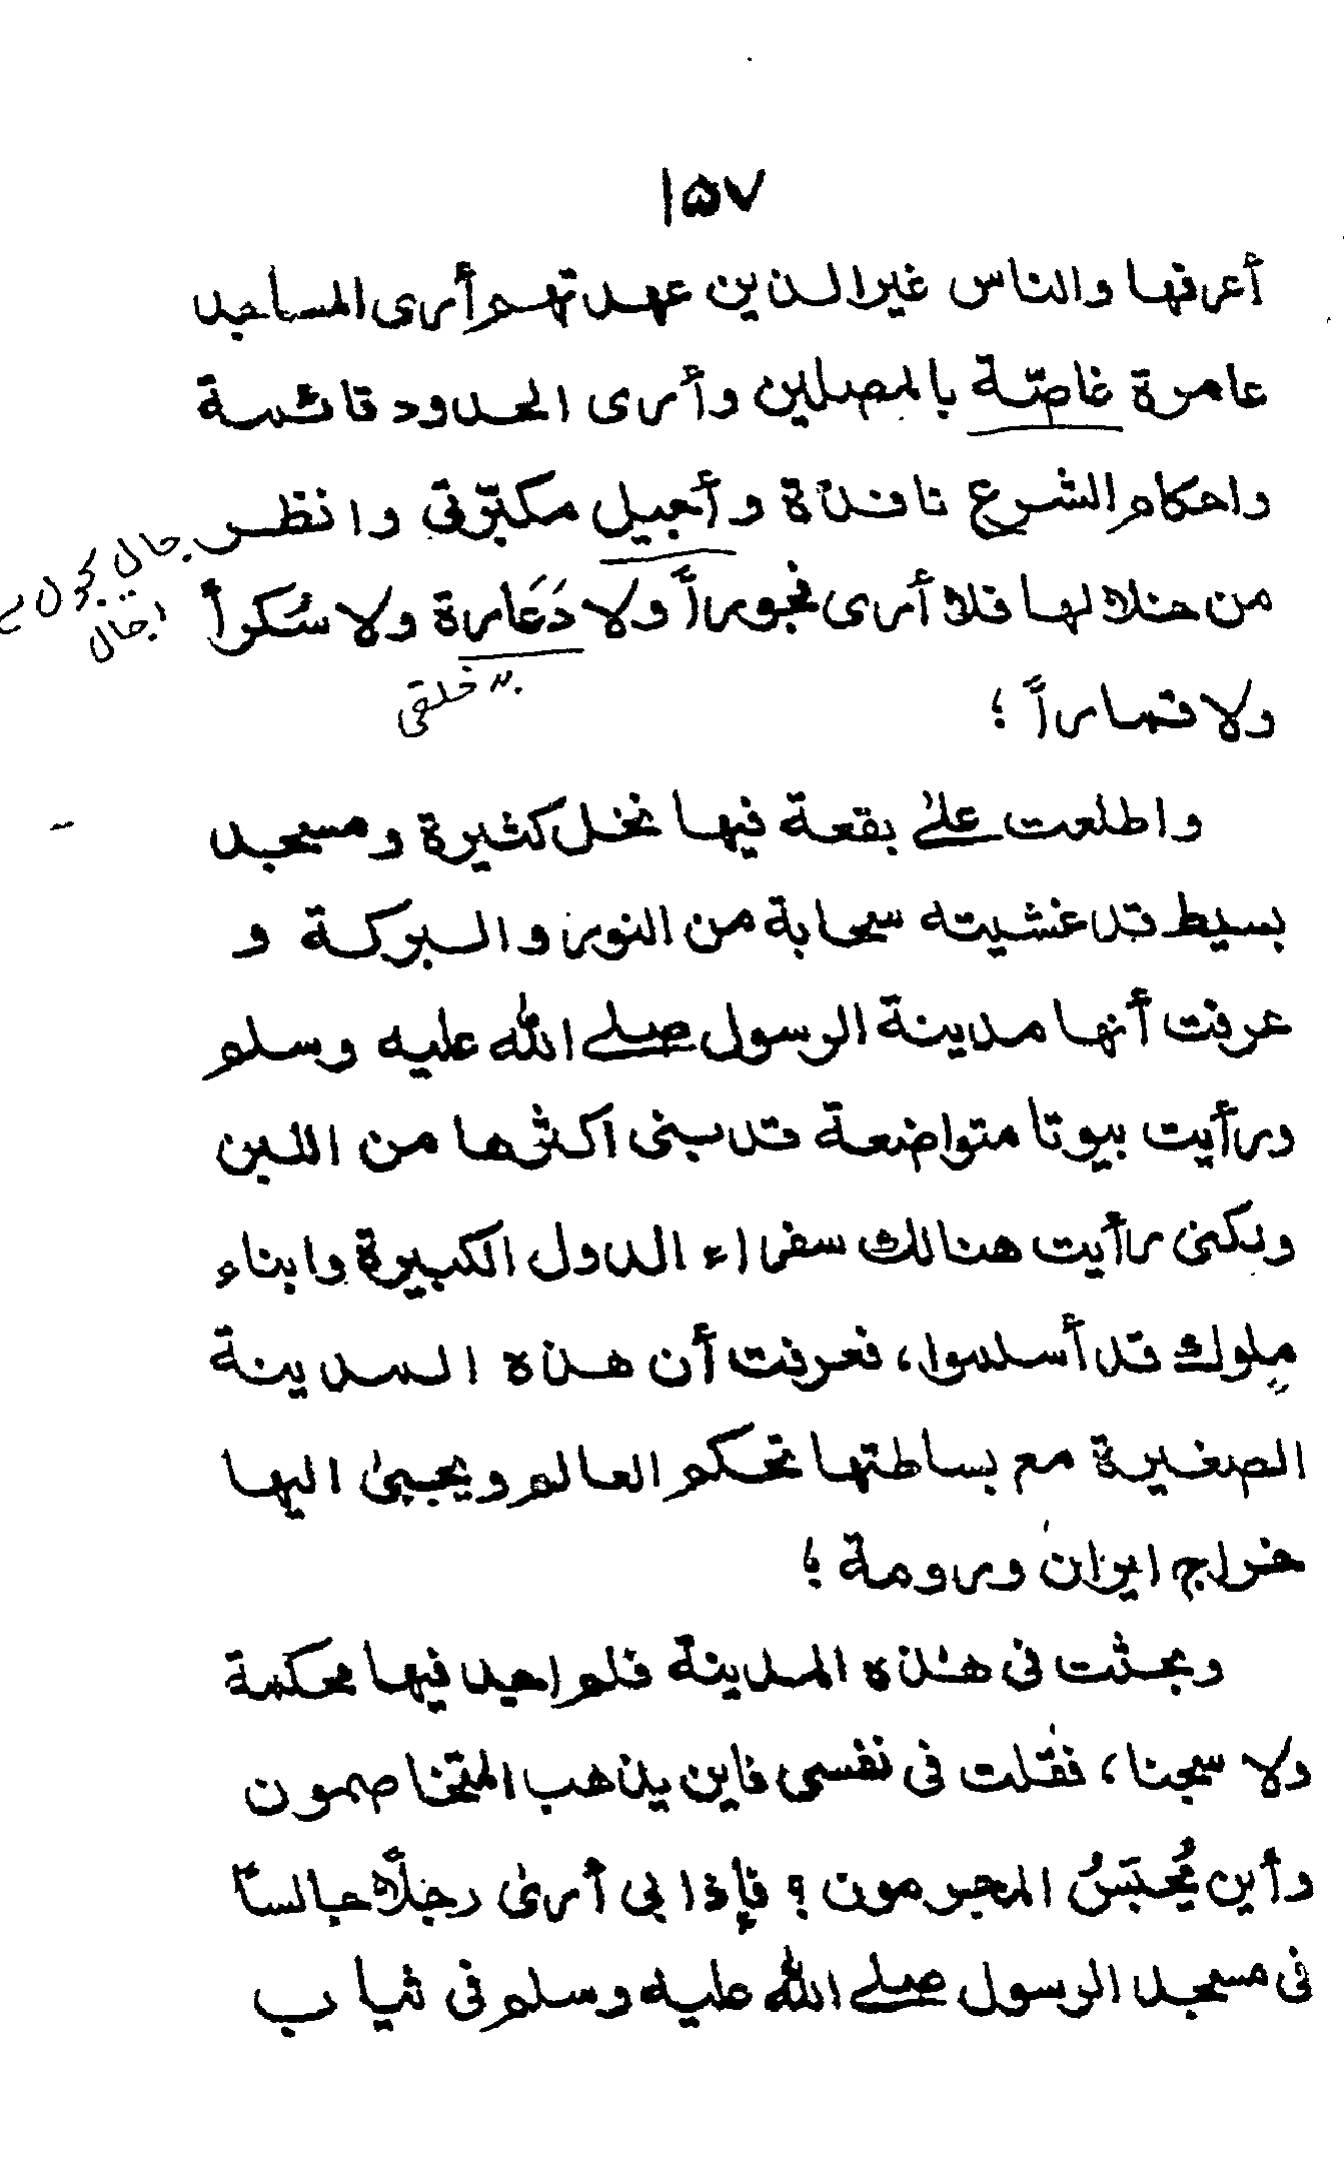 ۱۵۷
أعرفها والناس غير الذين عهدتهم أرى المساجد
عامرة غاصّة بالمصلين وأرى الحدود قائمة
واحكام الشرع نافذة وأجيل مكبّرتي وانظر
من خلالها فلا أرى فجوراً ولا دَعَارة ولا سُكراً
بد خلقى
ولا قماراً ؛
واطلعت على بقعة فيها نخل كثيرة ومسجد
بسيط قد غشيته سحابة من النور والبركة و
عرفت أنها مدينة الرسول صلى الله عليه وسلم
ورأيت بيوتا متواضعة قد بنى اكثرها من اللبن
ولكنى رأيت هنالك سفراء الدول الكبيرة وابناء
ملوك قد أسلموا، فعرفت أن هذه المدينة
الصغيرة مع بساطتها تحكم العالم ويجبىٰ اليها
خراج ايران ورومة ؛
وبحثت فى هذه المدينة فلم اجد فيها محكمة
ولا سجنا، فقلت فى نفسى فاين يذهب المتخاصمون
وأين يُحبَسُ المجرمون ؟ فإذا بى أرىٰ رجلاً جالساً
فى مسجد الرسول صلى الله عليه وسلم فى ثياب